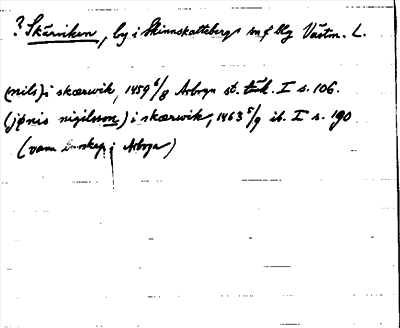 ? Skärviken, by i Skinnskattebergs sn o Blg Västm. L.
(nils) i skærwik, 1459 6/8 Arboga st. täk. I s. 106.
(jønis nigilsson) i skærwik, 1463 5/9 ib. I s. 190
(vam i Arboga)